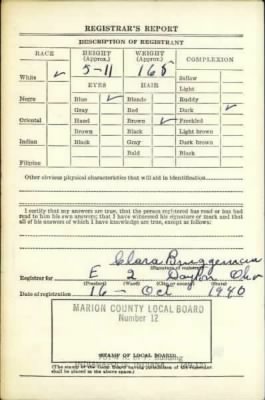 REGISTRAR'S REPORT
DESCRIPTION OF REGISTRANT
RACE HEIGHT (Approx.) WEIGHT (Approx.) COMPLEXION
White ✓ 5-11 165 Sallow
EYES HAIR Light
Negro Blue ✓ Blonde Ruddy
Gray Red Dark ✓
Oriental Hazel Brown ✓ Freckled
Brown Black Light brown
Indian Black Gray Dark brown
Bald Black
Filipino
Other obvious physical characteristics that will aid in identification
I certify that my answers are true; that the person registered has read or has had
read to him his own answers; that I have witnessed his signature or mark and that
all of his answers of which I have knowledge are true, except as follows:
Clara
(Signature of registrar)
Registrar for E 2 Dayton Ohio
(Precinct) (Ward) (City or county) (State)
Date of registration 16 - Oct 1940
MARION COUNTY LOCAL BOARD
Number 12
(STAMP OF LOCAL BOARD)
(The stamp of the Local Board having jurisdiction of the registrant
shall be placed in the above space.)